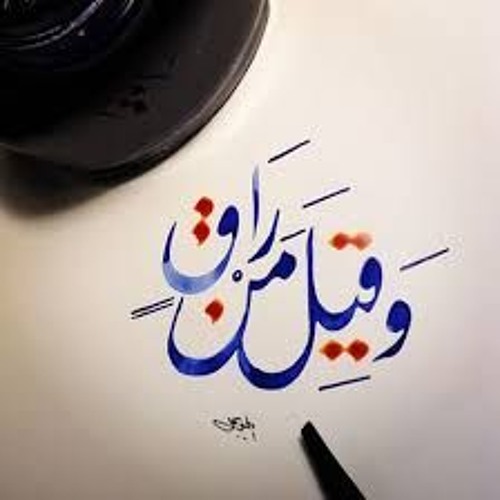 وَقِيلَ مَنْ رَاقٍ